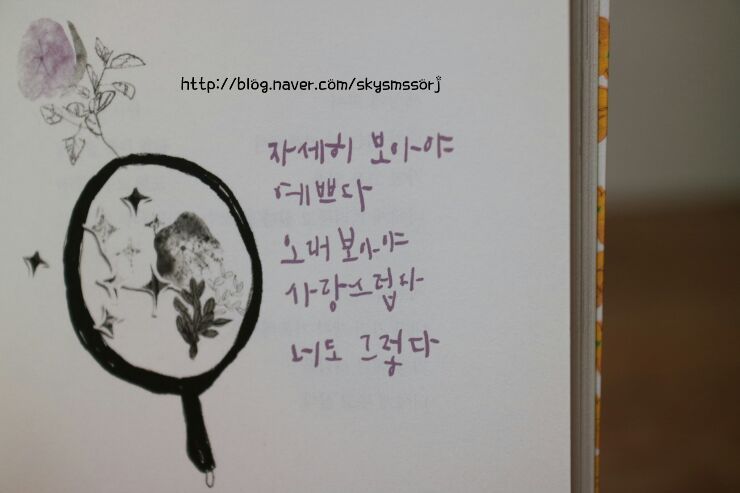 http://blog.naver.com/skysmssorj
자세히 보아야
예쁘다
오래 보아야
사랑스럽다
너도 그렇다